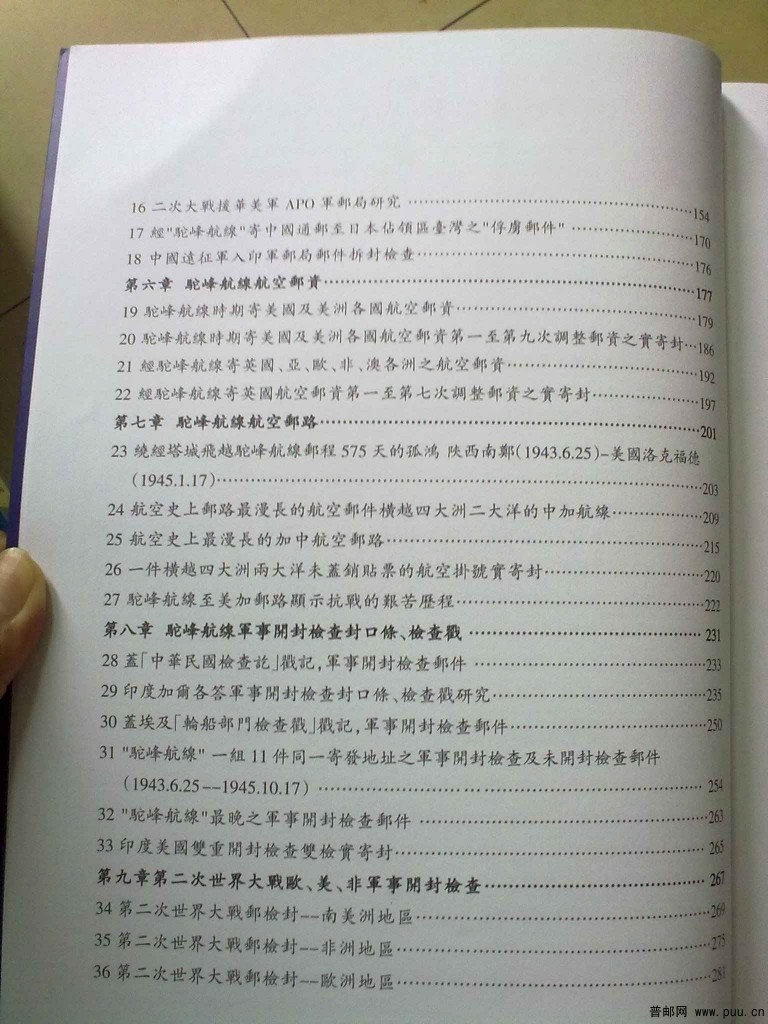 16 二次大戰援華美軍 APO 軍郵局研究 ……………………………154
17 經"駝峰航線"寄中國通郵至日本佔領區臺灣之"俘虜郵件" ……………170
18 中國遠征軍入印軍郵局郵件拆封檢查……………………………176
第六章 駝峰航線航空郵資……………………………177
19 駝峰航線時期寄美國及美洲各國航空郵資……………………………179
20 駝峰航線時期寄美國及美洲各國航空郵資第一至第九次調整郵資之實寄封…186
21 經駝峰航線寄英國、亞、歐、非、澳各洲之航空郵資……………………192
22 經駝峰航線寄英國航空郵資第一至第七次調整郵資之實寄封……………197
第七章 駝峰航線航空郵路……………………………201
23 繞經塔城飛越駝峰航線郵程 575 天的孤鴻 陜西南鄭(1943.6.25)-美國洛克福德
(1945.1.17)……………………………203
24 航空史上郵路最漫長的航空郵件橫越四大洲二大洋的中加航線…………209
25 航空史上最漫長的加中航空郵路……………………………215
26 一件橫越四大洲兩大洋未蓋銷貼票的航空掛號實寄封…………………220
27 駝峰航線至美加郵路顯示抗戰的艱苦歷程……………………………222
第八章 駝峰航線軍事開封檢查封口條、檢查戳 ……………………………231
28 蓋「中華民國檢查訖」戳記,軍事開封檢查郵件 ……………………………233
29 印度加爾各答軍事開封檢查封口條、檢查戳研究……………………………235
30 蓋埃及「輪船部門檢查戳」戳記,軍事開封檢查郵件……………………………250
31 "駝峰航線" 一組 11 件同一寄發地址之軍事開封檢查及未開封檢查郵件
(1943.6.25--1945.10.17) ……………………………254
32 "駝峰航線"最晚之軍事開封檢查郵件 ……………………………263
33 印度美國雙重開封檢查雙檢實寄封……………………………265
第九章第二次世界大戰歐、美、非軍事開封檢查……………………………267
34 第二次世界大戰郵檢封--南美洲地區……………………………269
35 第二次世界大戰郵檢封--非洲地區……………………………275
36 第二次世界大戰郵檢封--歐洲地區……………………………281
普邮网 www.puu.cn